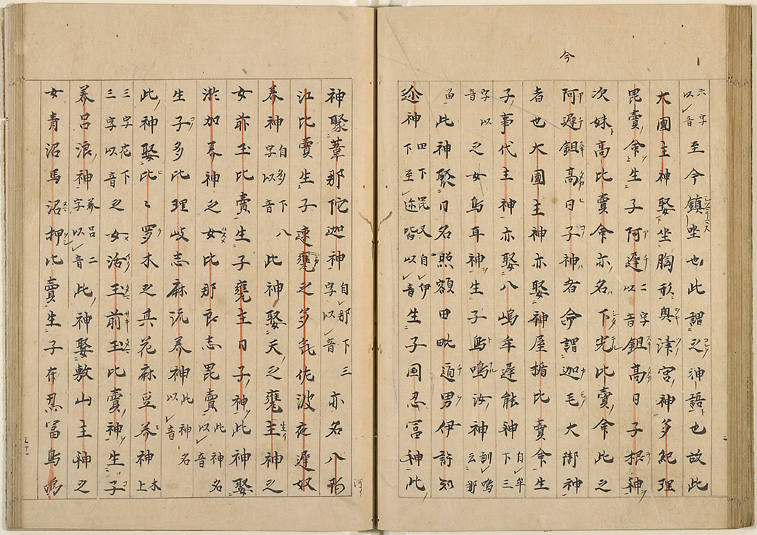 今
六字以音至今鎮坐也此謂之神語也故此
大國主神娶坐胸形奥津宮神多紀理
毘賣命生子阿遅二字以音鉏高日子根神
次妹高比賣命亦名下光比賣命此之
阿遅鉏高日子神者今謂迦毛大御神
者也大國主神亦娶神屋楯比賣命生
子事代主神亦娶八嶋牟遅能神自牟下三
字以音之女鳥耳神生子鳥鳴汝神訓鳴云那
留此神娶日名照額田毗道男伊許知
迩神田下毘又自伊下至迩皆以音生子国忍冨神此
神娶葦那陀迦神自那下三字以音亦名八河
江比賣生子速甕之多氣佐波夜遅奴
美神自多下八字以音此神娶天之甕主神之
女前玉比賣生子甕主日子神此神娶
淤加美神之女比那良志毘賣此神名以音
生子多比理岐志麻流美神此神名以音
此神娶比々羅木之其花麻豆美神木上
三字花下三字以音之女活玉前玉比賣神生子
美呂浪神美呂二字以音此神娶敷山主神之
女青沼馬沼押比賣生子布忍冨鳥鳴